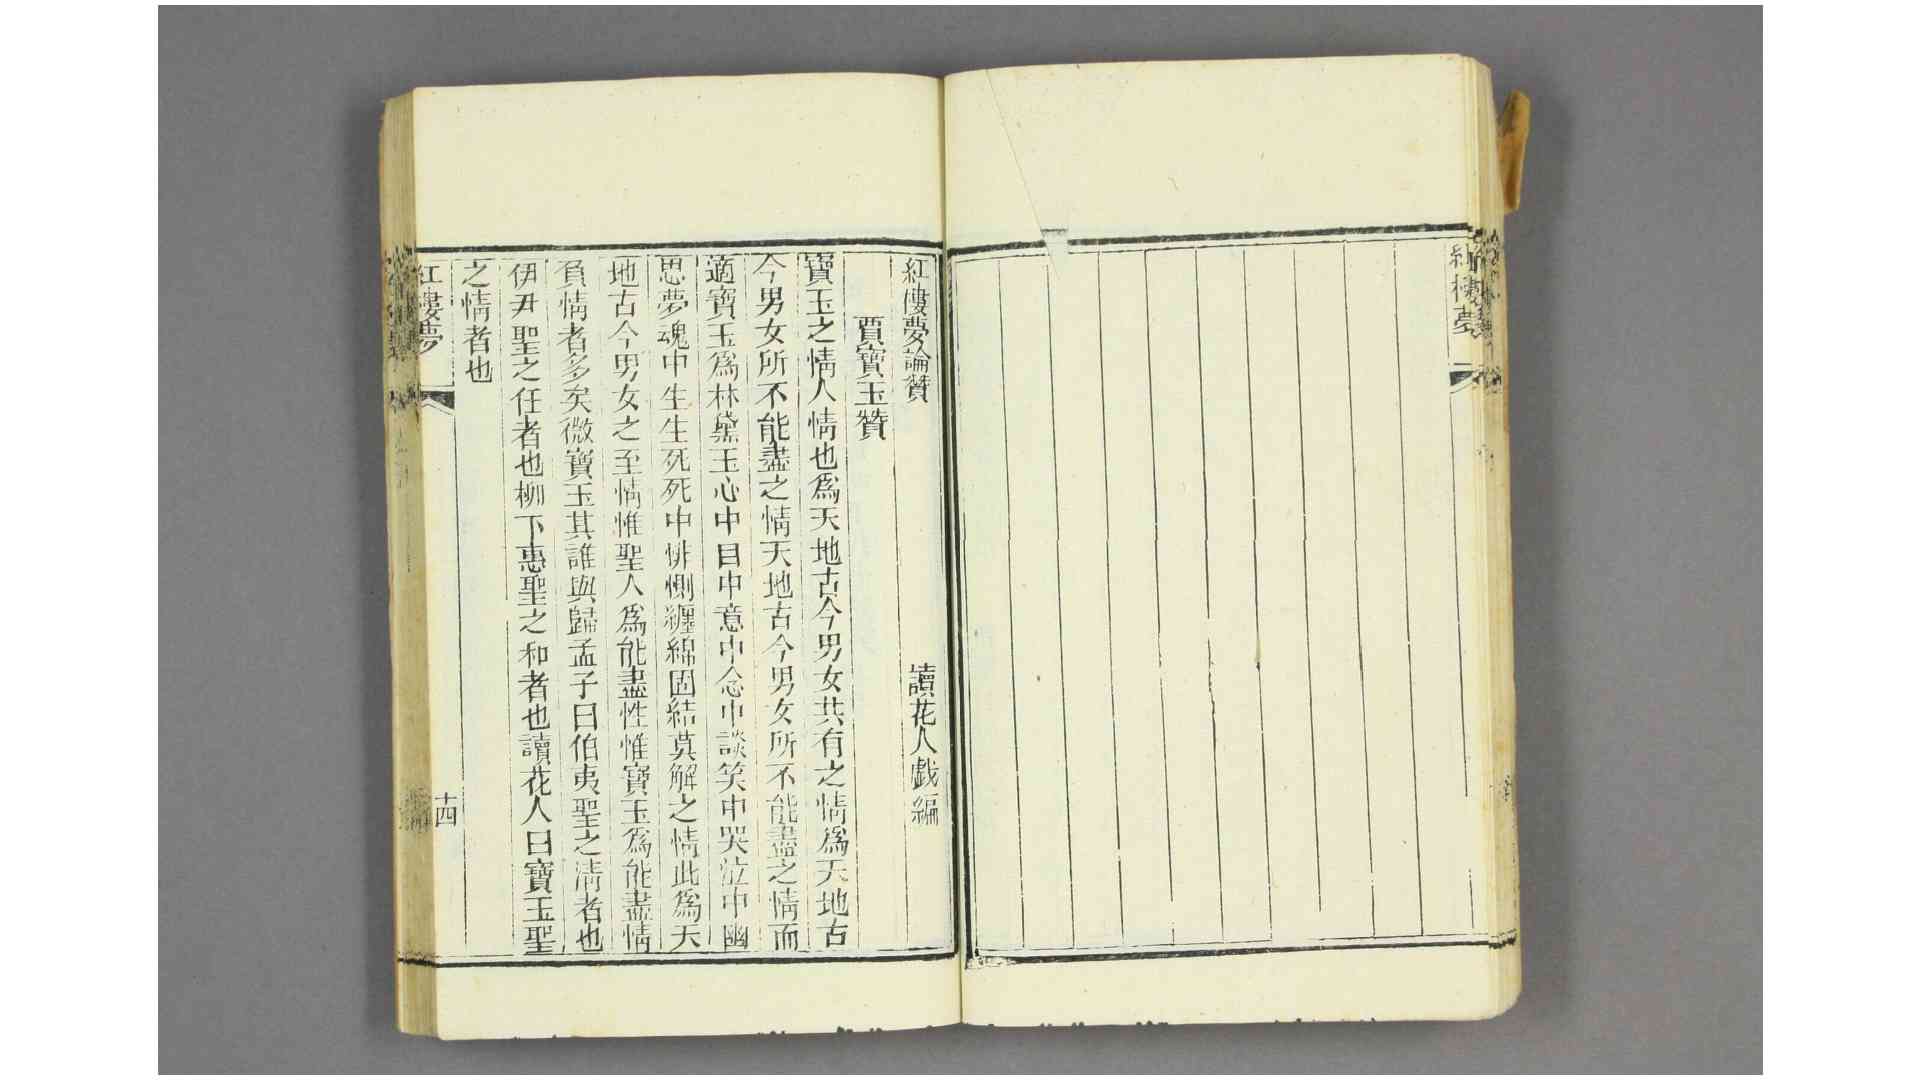 紅樓夢
紅樓夢論贊　讀花人戯編
賈寶玉贊
寶玉之情人情也爲天地古今男女共有之情爲天地古
今男女所不能盡之情天地古今男女所不能盡之情而
適寶玉爲林黛玉心中目中意中念中談笑中哭泣中幽
思夢魂中生生死死中悱惻纏綿固結莫解之情此爲天
地古今男女之至情惟聖人爲能盡性惟寶玉爲能盡情
負情者多矣微寶玉其誰與歸孟子曰伯夷聖之淸者也
伊尹聖之任者也柳下惠聖之和者也讀花人曰寶玉聖
之情者也
紅樓夢　十四